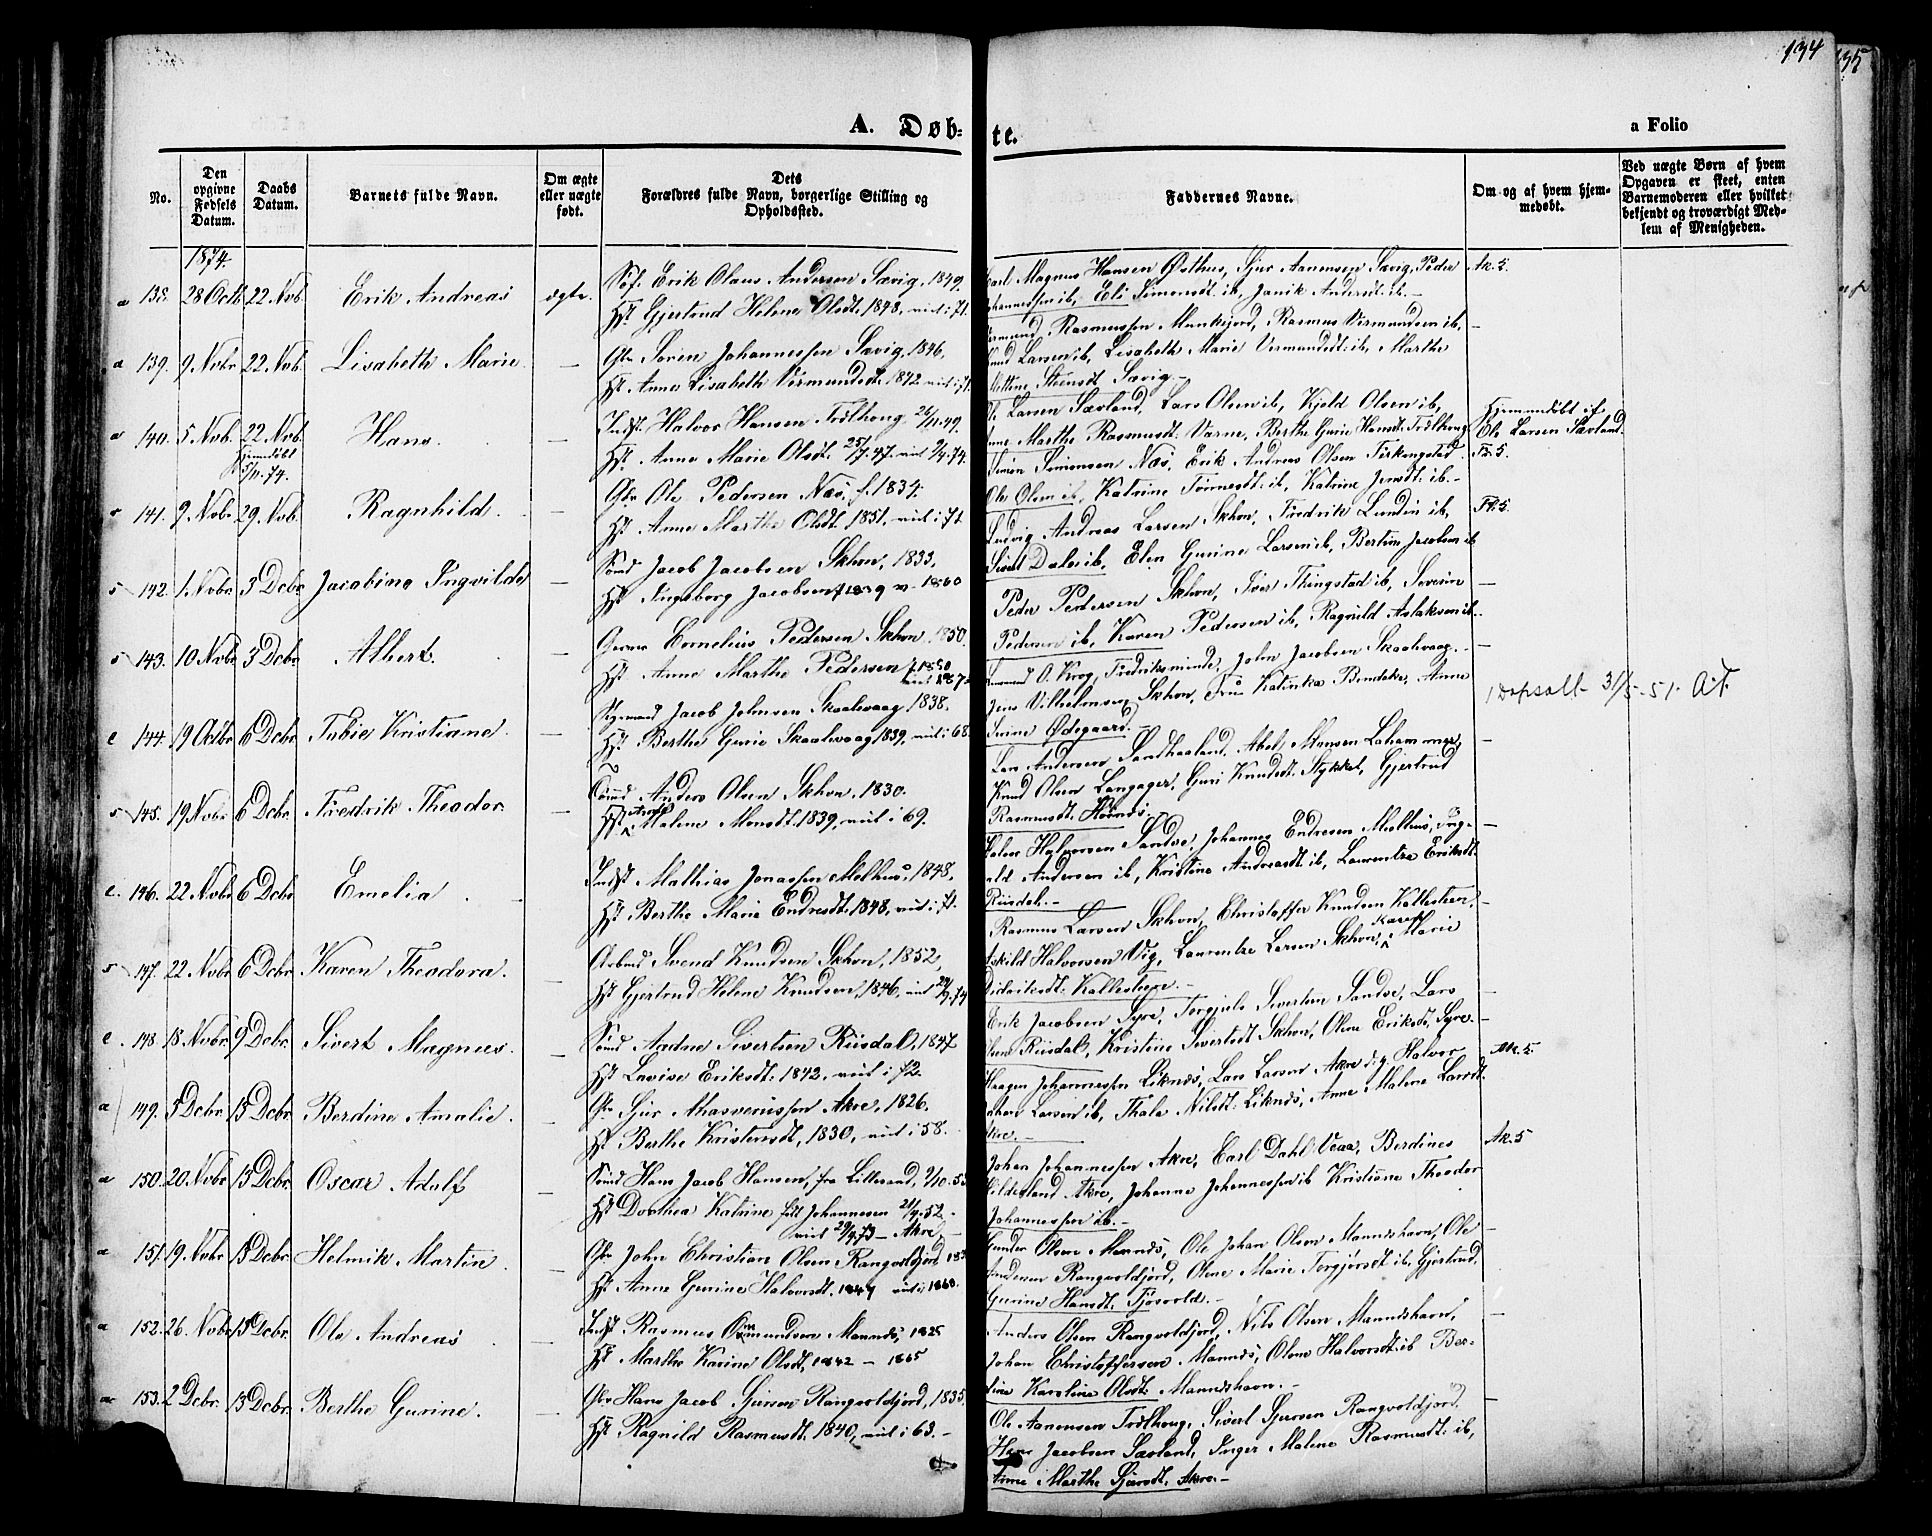 134
135
A. Døb-
te.
a Folio
No.
Den opgivne Fødsels Datum.
Daabs Datum.
Barnets fulde Navn.
Om ægte eller uægte født.
Dets Forældres fulde Navn, borgerlige Stilling og Opholdssted.
Faddernes Navne.
Om og af hvem hjemmedøbt.
Ved uægte Børn af hvem Opgaven er skeet, enten Barnemoderen eller hvilket bekjendt og troværdigt Medlem af Menigheden.
1874.
a 138. 28 Octb 22 Nvb. Erik Andreas ægte.
Erik Olaus Andersen Sævig, 1849.
Hst. Gjertrud Helene Olsdt. 1848, viet i 71.
Karl Magnus Hansen Østhus, Sjur Aanensen Sævig, Peder
Johannessen ib, Eli Simonsdt. ib, Janik Andersdt. ib. -
Ak. 5.
a 139. 9 Nvbr 22 Nvb. Lisabeth Marie. -
Gbr Soren Johannessen Sævig, 1846,
Hst. Anne Lisabeth Vermundsdt. 1842 viet i 71.
Vermund Rasmussen Munkejord, Rasmus Vermundsen ib,
Larsen ib, Lisabeth Marie Vermundsdt: ib, Marthe
Mettine Steensdt. Sævig. -
a 140. 5 Nvb. 22 Nvb. Hans. -
Hjemdøbt 5/11. 74.
Indst. Halvor Hansen Trælhoug 26/11.49.
Hst. Anne Marie Olsdt. 25/7.47. viet 2/4.74.
Ole Larsen Sævland, Lars Olsen ib, Kjeld Olsen ib,
Anne Marthe Rasmusdt. Varne, Berthe Gurie Hansdt. Trælhoug
Hjemmedøbt af
Ole Larsen Sævland.
141. 9 Nvbr 29 Nvb. Ragnhild. -
Gbr Ole Pedersen Næs, f. 1834.
Hst. Anne Marthe Olsdt. 1851, viet i 71.
Simon Simonsen Næs, Erik Andreas Olsen Firkengstad
Ole Olsen ib, Katrine Tørresdt. ib, Katrine Jensdt. ib. -
s 142. 1. Nvbr 3 Dcbr Jacobine Ingvilde -
Sømd Jacob Jacobsen Skhvn, 1833,
Hst Ingeborg Jacobsen f 1839 v. 1860
Ludvig Andreas Larsen Skhvn, Fredrik Lundin ib,
Sivert Dale ib, Elen Gurine Larsen ib, Bertine Jacobsen ib
s 143. 10 Nvbr 3 Dcbr Albert. -
Cornelius Pedersen Skhvn. 1850.
Hst Anne Marthe Pedersen f. 1850
Peder Pedersen Skhvn, Iver Thingstad ib, Severin
Pedersen ib, Karen Pedersen ib, Ragnild Aslaksen ib.
e 144. 19 Octbr 6 Dcbr. Tobie Kristiane. -
Jacob Johnsen Skaalevaag, 1838.
Hst Berthe Gurie Skaalevaag 1839, viet i 68.
O. Krog, Fredriksminde, John Jacobsen Skaalevaag.
Jens Vilhelmsen Skhvn, Fru Katinka Bendeke, Anne
Serine Ødegaard. -
1 Dopsatt- 31/5-51. A.T.
s 145. 19 Nvbr 6 Dcbr. Fredrik Theodor. -
Anders Olsen Skhvn. 1830.
Hst Malene Monsdt. 1839, viet i 69.
Lars Andersen Sandhaaland, Abel Monsen Lahammer,
Knud Olsen Langager, Guri Knudsdt. Stykket, Gjertrud
Rasmusdt.
e. 146. 22 Nvbr 6 Dcbr Emelia. -
Indst Mathias Jonassen Melhus, 1848,
Hst Berthe Marie Endresdt. 1848, viet i 71.
Halvorsen Sandve, Johannes Endresen Melhus, Ing-
Andersen ib, Kristine Andreasdt. ib, Laurentze Eriksdt.
Riisdal. -
s 147. 22 Nvbr 6 Dcbr Karen Theodora. -
Arbmd Svend Knudsen Skhvn, 1852,
Hst Gjertrud Helene Knudsen, 1846, viet
Rasmus Larsen Skhvn, Christoffer Knudsen Kallesteen,
Askild Halvorsen Vig, Laurentze Larsen Skhvn, Karen Marie
Didriksdt. Kallesteen. -
e. 148. 18 Nvbr. 9 Dcbr. Sivert Magnus. -
Sømd Andne Sivertsen Riisdal, 1847
Hst Lovise Eriksdt. 1842, viet i 72.
Erik Jacobsen Syre, Torgjuls Sivertsen Sandve, Lars
Riisdal, Kristine Sivertsdt Skhvn, Oline Eriksdt, Syre. -
a 149. 5 Dcbr. 13 Dcbr. Berdine Amalie. -
Gbr Sjur Masveriussen Akre, 1826.
Hst Berthe Kristensdt, 1830, viet i 58.
Haagen Johannessen Liknes, Lars Larsen Akre d.y. Halvor
Larsen ib, Thale Nilsdt. Liknes, Anne Malene Larsdt.
Akre. -
Ak. 5
a 150. 20 Nvbr 13 Dcbr. Oscar Adolf -
Sømd Hans Jacob Hansen, fra Lillesand,
Hst Dorthea Katrine født Johannesen 21/9.52. -
viet 29/9.73 - Akre
Johan Johannessen Akre, Carl Dahl Veaa, Berdines
Hilderland Akre, Johanne Johannessen ib Kristiane Theodor
Johannessen ib. -
Ak. 5
a 151. 19. Nvbr. 13 Dcbr. Helmik Martin. -
Gbr John Christian Olsen Rangvoldjord
Hst Anne Gurine Halvorsdt. 1847 viet i 1860.
Gunder Olsen Mannes, Ole Johan Olsen Manneshavn, Ole
Andersen Rangvoldjord, Olene Marie Torgjersdt ib, Gjertrud
Gurine Hansdt. Tjøsvold. -
a 152. 26. Nvbr 13 Dcbr. Ole Andreas. -
Indst Rasmus Omundsen Mannes, 1825
Hst Marthe Karine Olsdt, 1842 - 1865
Anders Olsen Rangvoldjord, Nils Olsen Manneshavn,
Johan Christoffersen Mannes, Olene Halvorsdt ib Ber-
tine Karoline Olsdt. Manneshavn. -
153. 2 Dcbr. 13 Dcbr. Berthe Gurine. -
Gbr Hans Jacob Sjursen Rangvoldjord, 1835
Hst Ragnild Rasmusdt. 1840, viet i 63. -
Ole Aanensen Trælhoug, Sivert Sjursen Rangvoldjord,
Hans Jacobsen Sævland, Inger Malene Rasmusdt. ib,
Anne Marthe Sjursdt. Akre. -